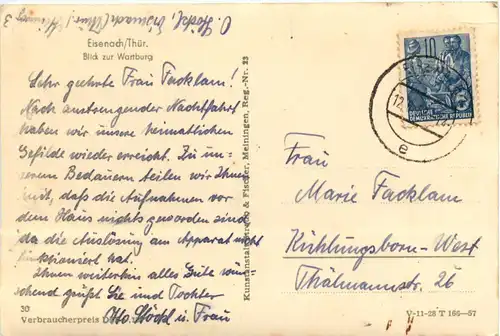 O. Höckl, Eisenach/Thür.
Eisenach/Thür.
Blick zur Wartburg
Sehr geehrte Frau Facklam!
Nach anstrengender Nachtfahrt
haben wir unsere heimatlichen
Gefilde wieder erreicht. Zu un-
serem Bedauern teilen wir Ihnen
mit, daß die Aufnahmen vor
dem Haus nichts geworden sind
da die Auslösung am Apparat nicht
funktioniert hat.
Ihnen weiterhin alles Gute wün-
schend grüßt Sie und Tochter
Otto Höckl u. Frau
30
Verbraucherpreis
Kunstanstalt Straub & Fischer, Meiningen, Reg.-Nr. 23
10
DEUTSCHE
DEMOKRATISCHE REPUBLIK
12.
e
Frau
Marie Facklam
Kühlungsborn-West
Thälmannstr. 26
V-11-28 T 166-57